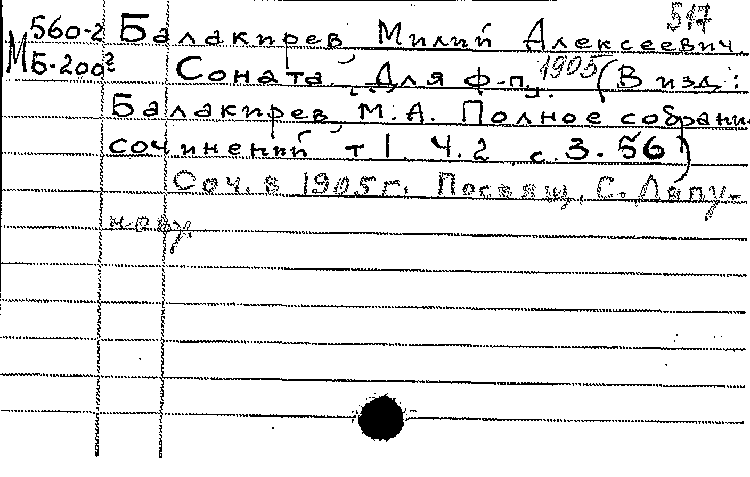 517
М 560-2 Балакирев, Милий Алексеевич.
Б-200² Соната. Для ф-п. 1905 (В изд.:
Балакирев, М.А. Полное собрани
сочинений т 1. Ч.2 с. 3-56)
Соч. в 1905г. Посвящ. С. Ляпу-
нову.